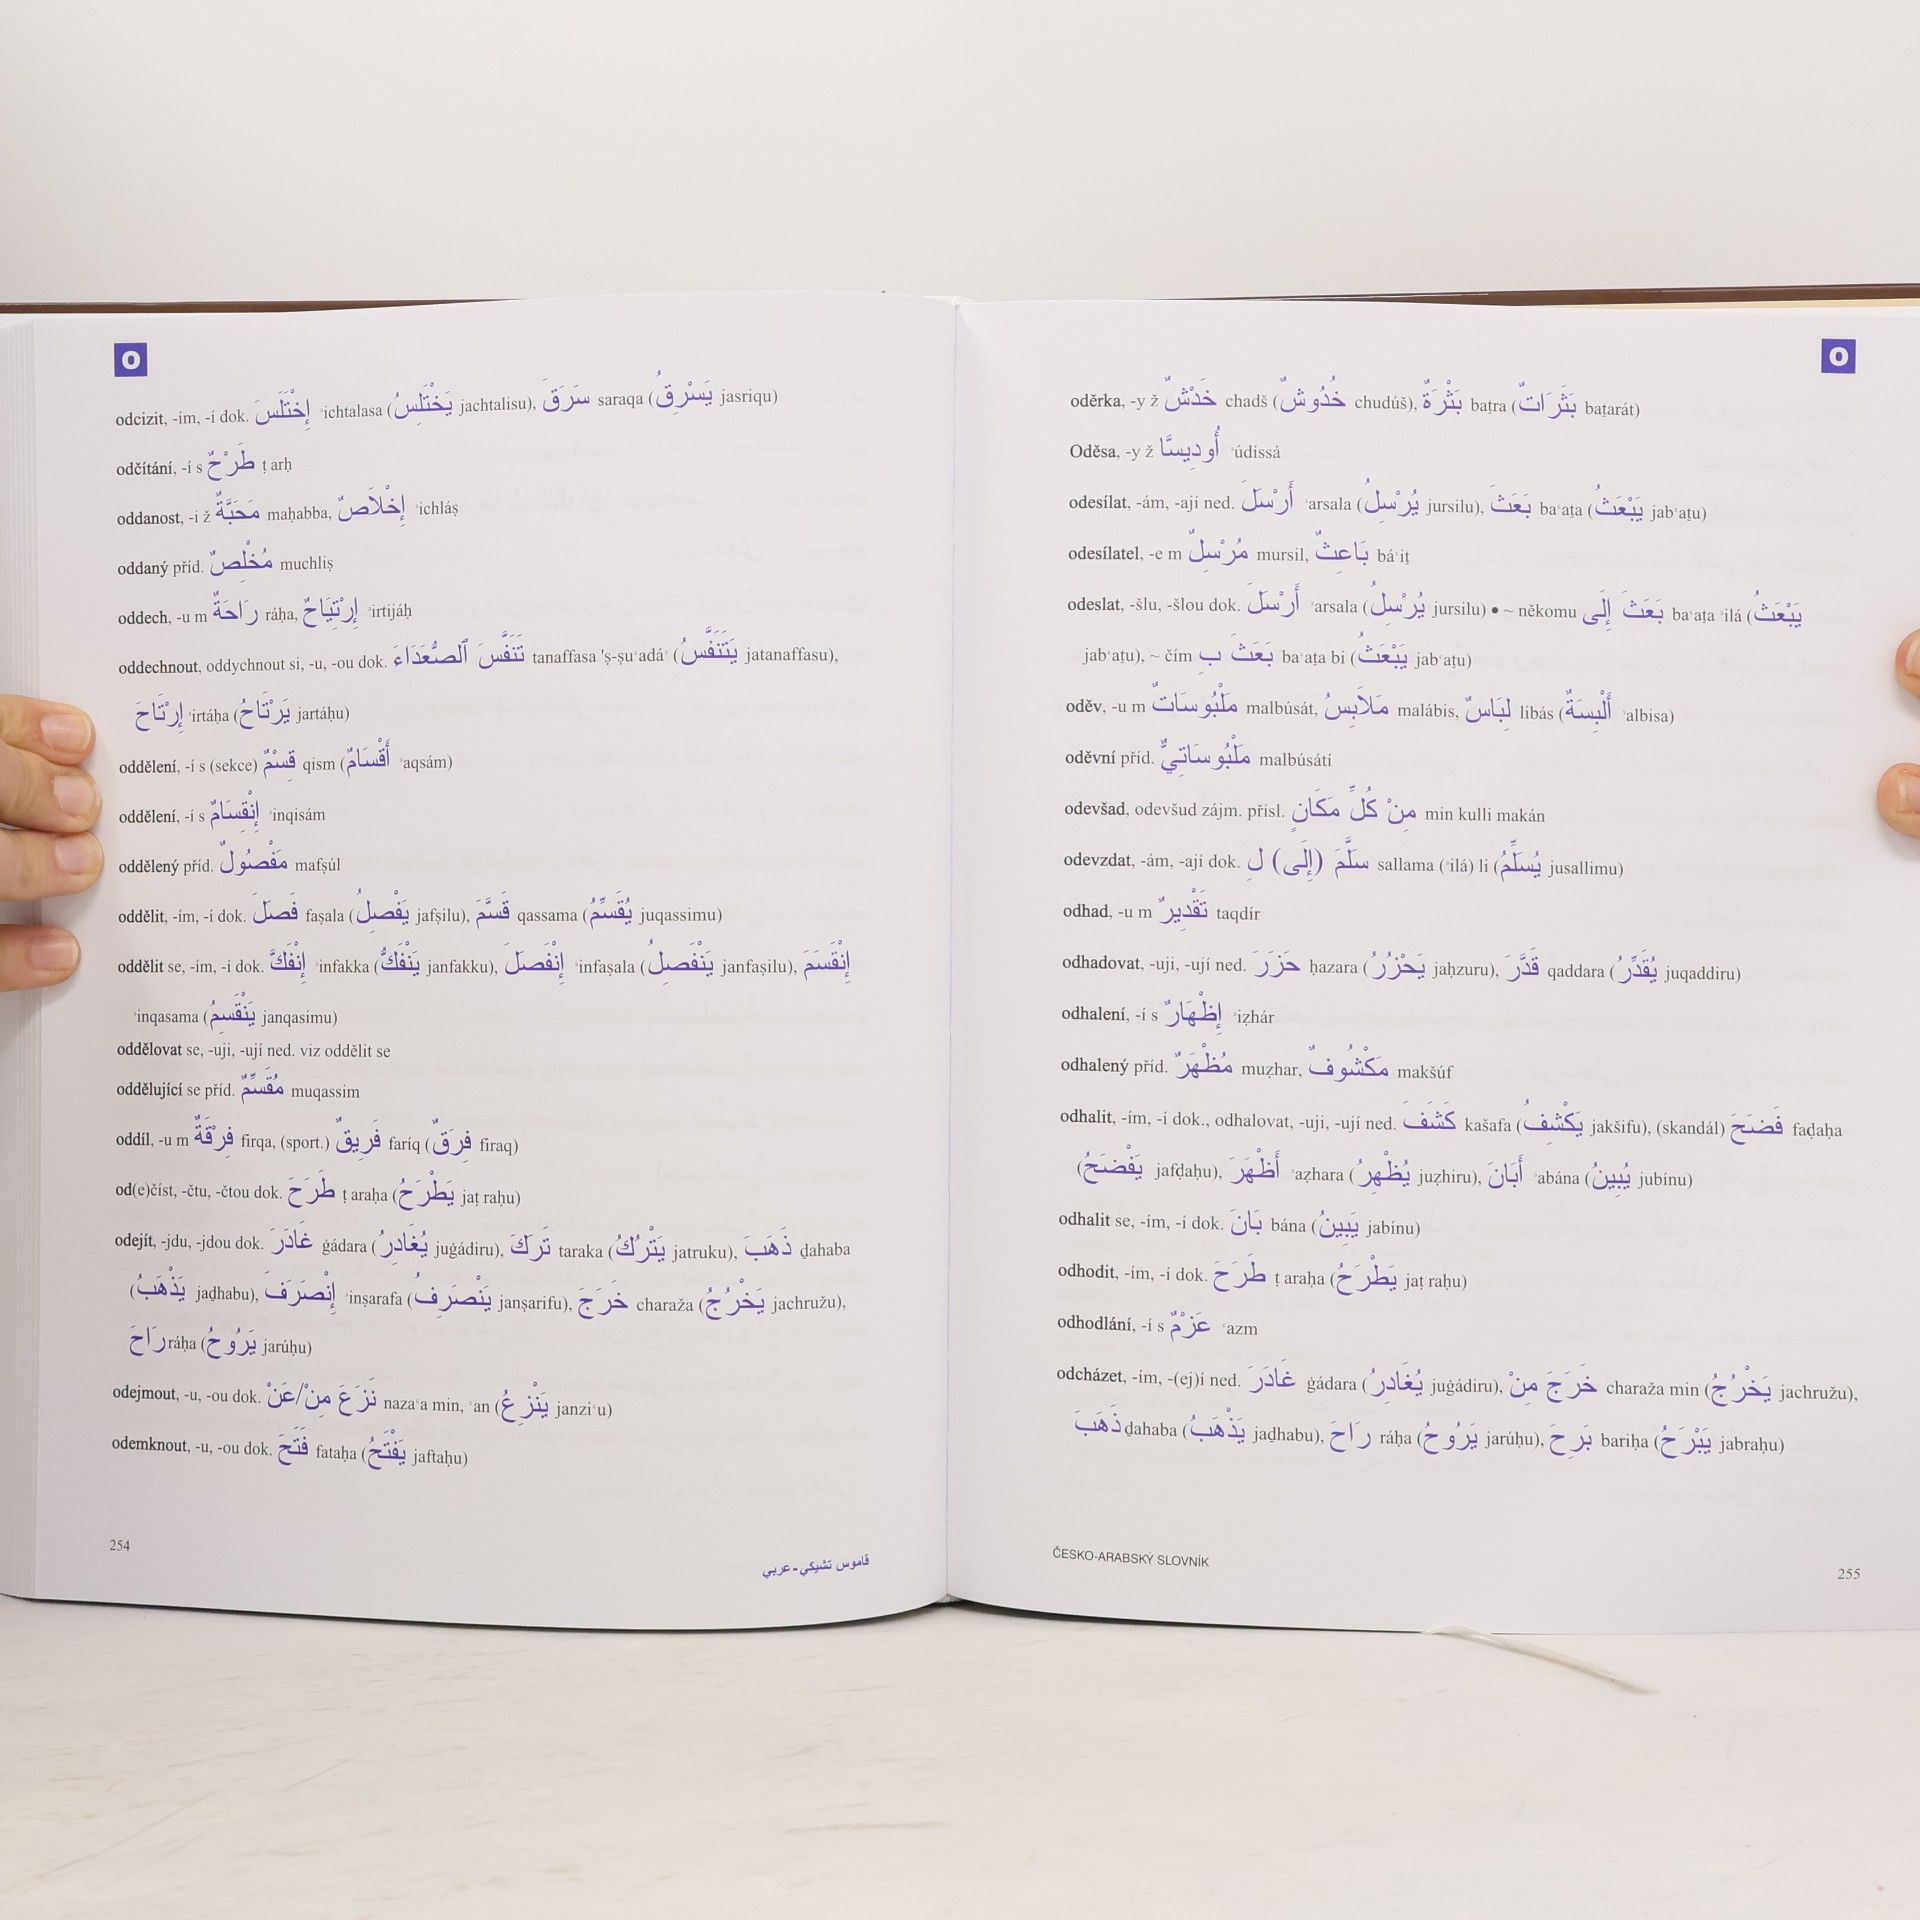 O
odcizit, -ím, -í dok. إِخْتَلَسَ ʾichtalasa (يَخْتَلِسُ jachtalisu), سَرَقَ saraqa (يَسْرِقُ jasriqu)
odčítání, -í s طَرْحٌ ṭ arḥ
oddanost, -i ž مَحَبَّةٌ maḥabba, إِخْلَاصٌ ʾichláṣ
oddaný příd. مُخْلِصٌ muchliṣ
oddech, -u m رَاحَةٌ ráḥa, إِرْتِيَاحٌ ʾirtijáḥ
oddechnout, oddychnout si, -u, -ou dok. تَنَفَّسَ ٱلصُّعَدَاءَ tanaffasa 'ṣ-ṣuʿadáʾ (يَتَنَفَّسُ jatanaffasu),
إِرْتَاحَ ʾirtáḥa (يَرْتَاحُ jartáḥu)
oddělení, -í s (sekce) قِسْمٌ qism (أَقْسَامٌ ʾaqsám)
oddělení, -í s إِنْقِسَامٌ ʾinqisám
oddělený příd. مَفْصُولٌ mafṣúl
oddělit, -ím, -í dok. فَصَلَ faṣala (يَفْصِلُ jafṣilu), قَسَّمَ qassama (يُقَسِّمُ juqassimu)
oddělit se, -ím, -í dok. إِنْفَكَّ ʾinfakka (يَنْفَكُّ janfakku), إِنْفَصَلَ ʾinfaṣala (يَنْفَصِلُ janfaṣilu), إِنْقَسَمَ
ʾinqasama (يَنْقَسِمُ janqasimu)
oddělovat se, -uji, -ují ned. viz oddělit se
oddělující se příd. مُقَسِّمٌ muqassim
oddíl, -u m فِرْقَةٌ firqa, (sport.) فَرِيقٌ faríq (فِرَقٌ firaq)
od(e)číst, -čtu, -čtou dok. طَرَحَ ṭ araḥa (يَطْرَحُ jaṭ raḥu)
odejít, -jdu, -jdou dok. غَادَرَ ġádara (يُغَادِرُ juġádiru), تَرَكَ taraka (يَتْرُكُ jatruku), ذَهَبَ ḏahaba
(يَذْهَبُ jaḏhabu), إِنْصَرَفَ ʾinṣarafa (يَنْصَرِفُ janṣarifu), خَرَجَ charaža (يَخْرُجُ jachružu),
رَاحَ ráḥa (يَرُوحُ jarúḥu)
odejmout, -u, -ou dok. نَزَعَ مِنْ/عَنْ nazaʿa min, ʿan (يَنْزِعُ janziʿu)
odemknout, -u, -ou dok. فَتَحَ fataḥa (يَفْتَحُ jaftaḥu)
254
قاموس تشيكي-عربي
O
oděrka, -y ž خَدْشٌ chadš (خُدُوشٌ chudúš), بَثْرَةٌ baṭra (بَثَرَاتٌ baṭarát)
Oděsa, -y ž أُودِيسَّا ʾúdíssá
odesílat, -ám, -ají ned. أَرْسَلَ ʾarsala (يُرْسِلُ jursilu), بَعَثَ baʿaṭa (يَبْعَثُ jabʿaṭu)
odesílatel, -e m مُرْسِلٌ mursil, بَاعِثٌ báʿiṭ
odeslat, -šlu, -šlou dok. أَرْسَلَ ʾarsala (يُرْسِلُ jursilu) • ~ někomu بَعَثَ إِلَى baʿaṭa ʾilá (يَبْعَثُ
jabʿaṭu), ~ čím بَعَثَ بِ baʿaṭa bi (يَبْعَثُ jabʿaṭu)
oděv, -u m مَلْبُوسَاتٌ malbúsát, مَلَابِسُ malábis, لِبَاسٌ libás (أَلْبِسَةٌ ʾalbisa)
oděvní příd. مَلْبُوسَاتِيٌّ malbúsátí
odevšad, odevšud zájm. přísl. مِنْ كُلِّ مَكَانٍ min kulli makán
odevzdat, -ám, -ají dok. سَلَّمَ (إِلَى) لِ sallama (ʾilá) li (يُسَلِّمُ jusallimu)
odhad, -u m تَقْدِيرٌ taqdír
odhadovat, -uji, -ují ned. حَزَرَ ḥazara (يَحْزُرُ jaḥzuru), قَدَّرَ qaddara (يُقَدِّرُ juqaddiru)
odhalení, -í s إِظْهَارٌ ʾiẓhár
odhalený příd. مُظْهَرٌ muẓhar, مَكْشُوفٌ makšúf
odhalit, -ím, -í dok., odhalovat, -uji, -ují ned. كَشَفَ kašafa (يَكْشِفُ jakšifu), (skandál) فَضَحَ faḍaḥa
(يَفْضَحُ jafḍaḥu), أَظْهَرَ ʾaẓhara (يُظْهِرُ juẓhiru), أَبَانَ ʾabána (يُبِينُ jubínu)
odhalit se, -ím, -í dok. بَانَ bána (يَبِينُ jabínu)
odhodit, -ím, -í dok. طَرَحَ ṭ araḥa (يَطْرَحُ jaṭ raḥu)
odhodlání, -í s عَزْمٌ ʿazm
odcházet, -ím, -(ej)í ned. غَادَرَ ġádara (يُغَادِرُ juġádiru), خَرَجَ مِنْ charaža min (يَخْرُجُ jachružu),
ذَهَبَ ḏahaba (يَذْهَبُ jaḏhabu), رَاحَ ráḥa (يَرُوحُ jarúḥu), بَرِحَ bariḥa (يَبْرَحُ jabraḥu)
ČESKO-ARABSKÝ SLOVNÍK
255